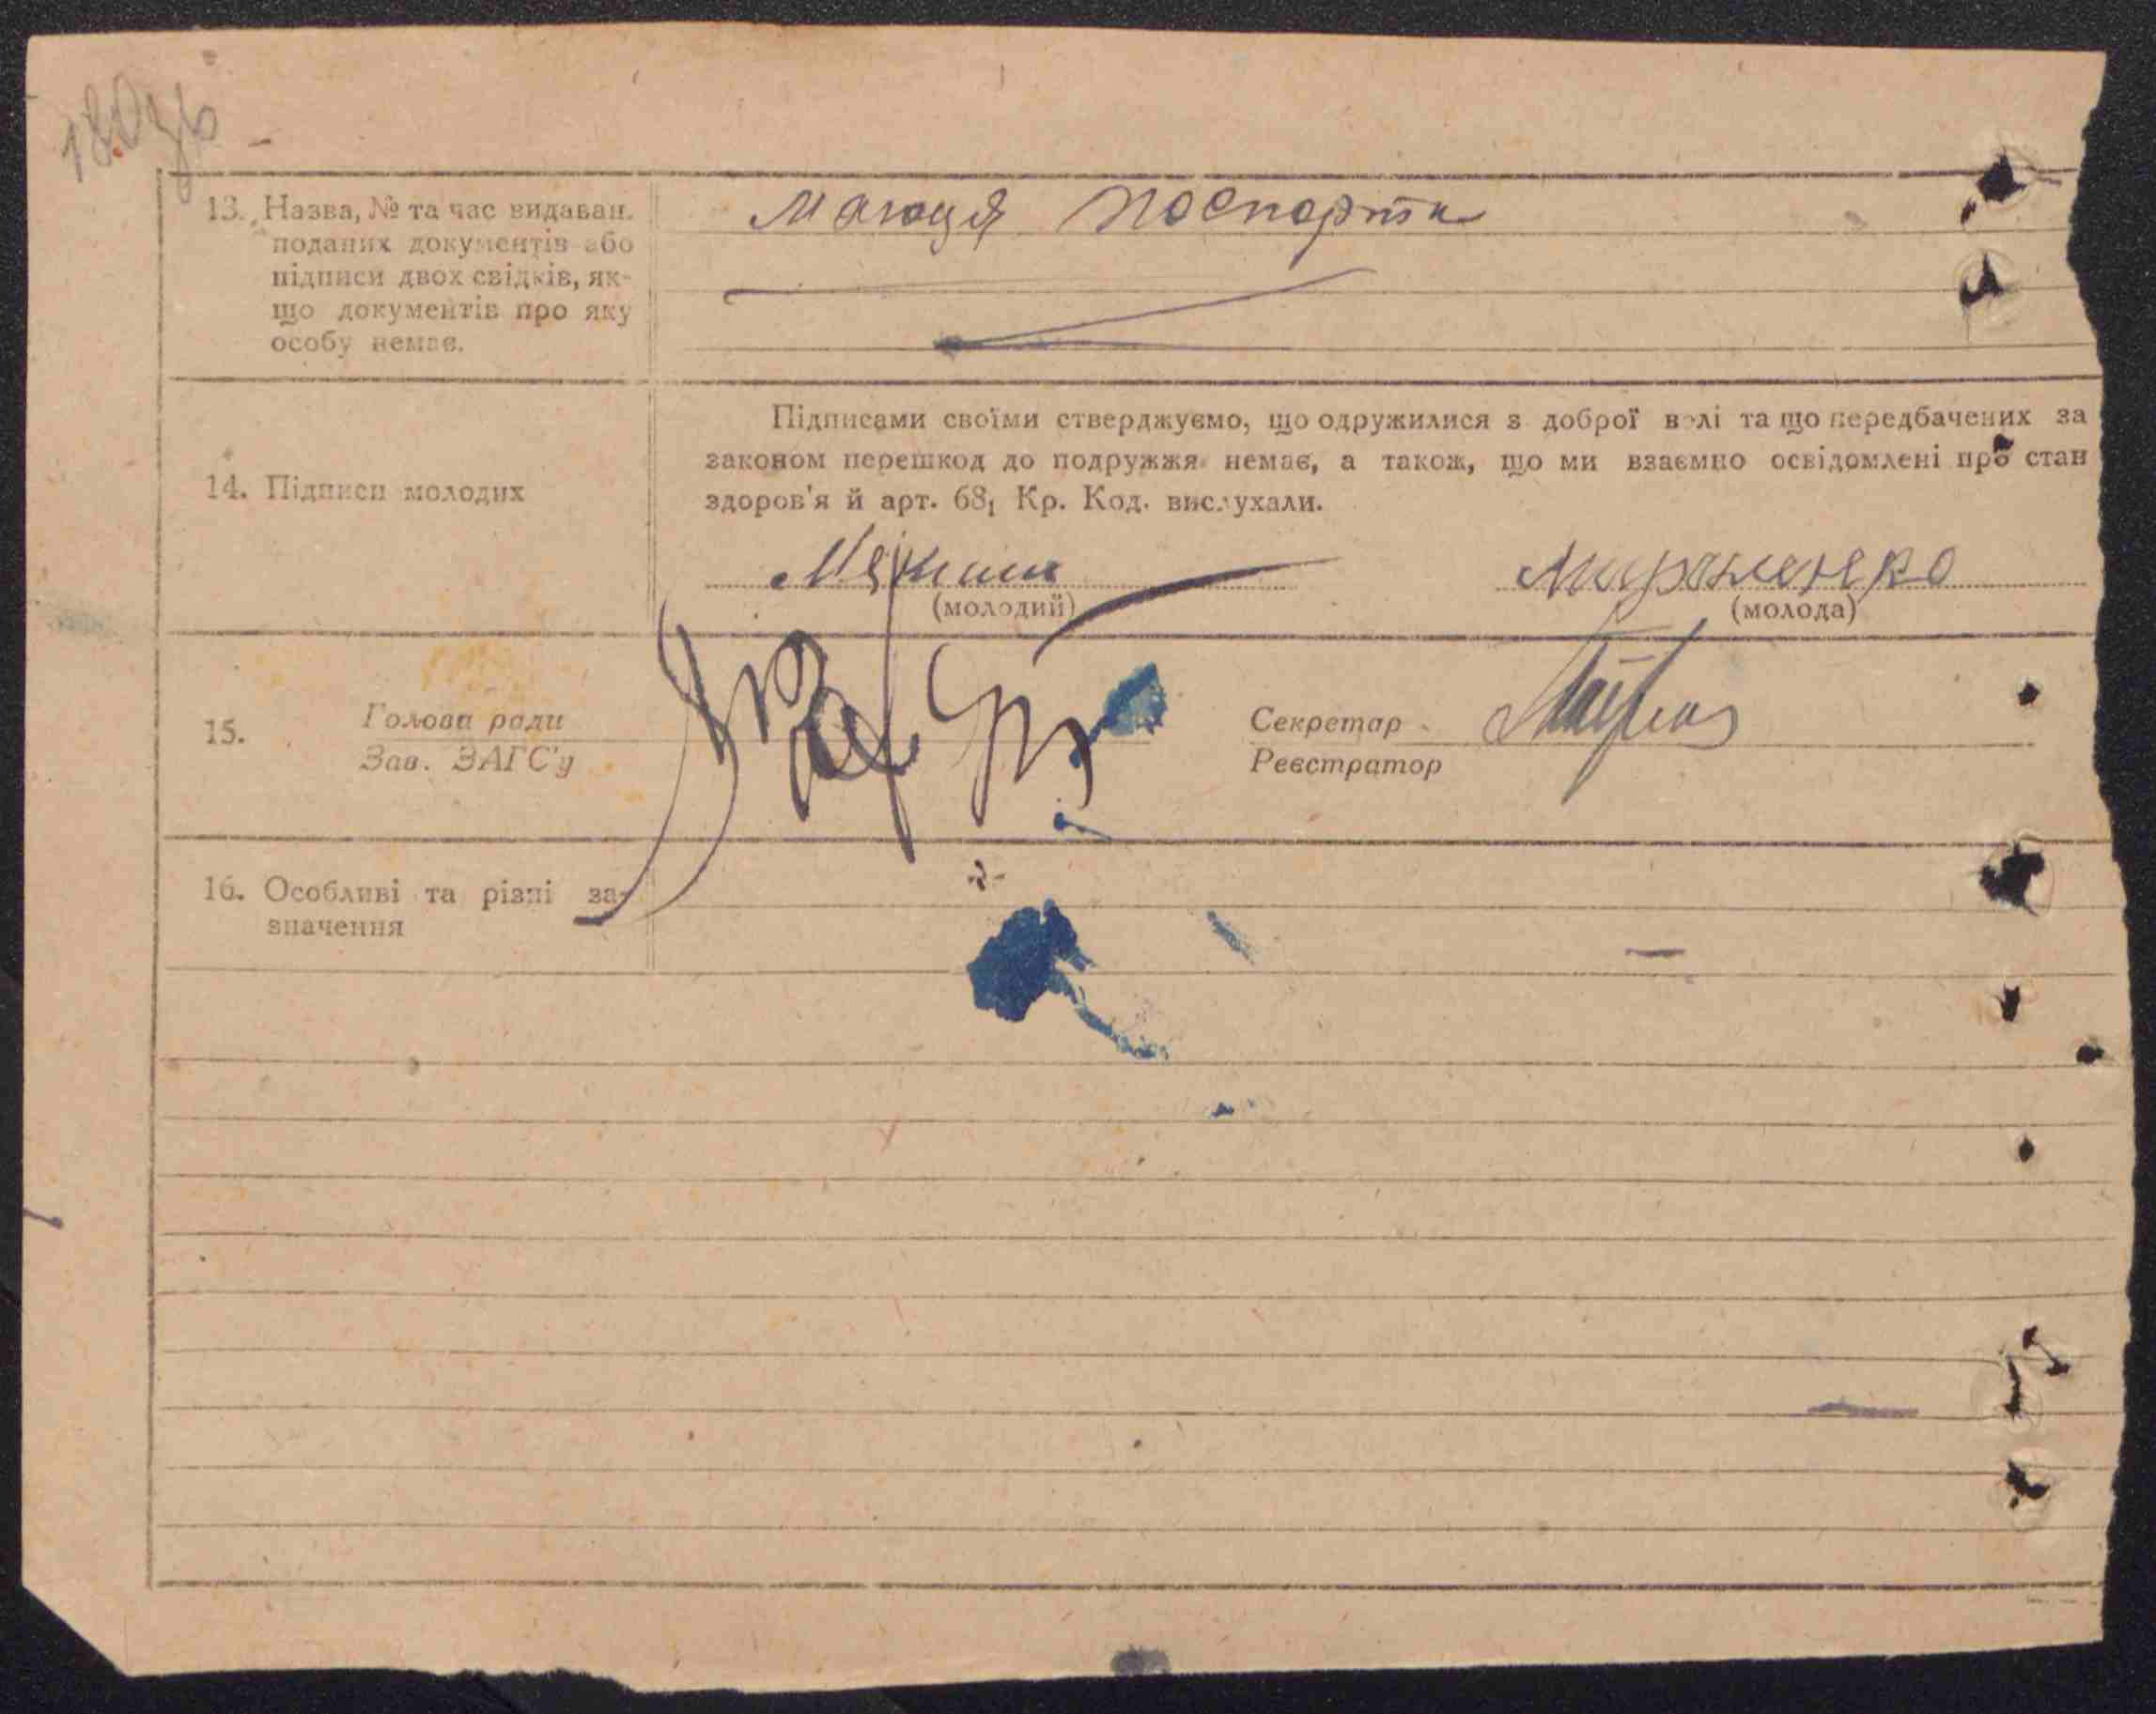 13. Назва, № та час видаван. поданих документів або підписи двох свідків, якщо документів про яку особу немає.
Маюця паспорти
14. Підписи молодих
Підписами своїми стверджуємо, що одружилися з доброї волі та що передбачених за
законом перешкод до подружжя немає, а також, що ми взаємно освідомлені про стан
здоров'я й арт. 68₁ Кр. Код. вислухали.
Мироненко
(молодий)
(молода)
15.
Голова ради
Зав. ЗАГС'у
Секретар
Реєстратор
16. Особливі та різні за-
значення